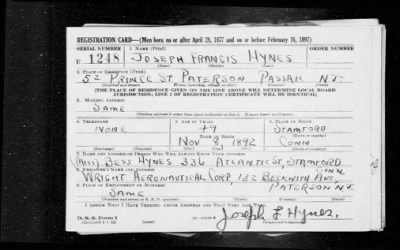 REGISTRATION CARD—(Men born on or after April 28, 1877 and on or before February 16, 1897)
SERIAL NUMBER 1. NAME (Print) ORDER NUMBER
U 1248 JOSEPH FRANCIS HYNES
2. PLACE OF RESIDENCE (Print)
52 PRINCE ST. PATERSON PASSAIC N.J.
[THE PLACE OF RESIDENCE GIVEN ON THE LINE ABOVE WILL DETERMINE LOCAL BOARD JURISDICTION; LINE 2 OF REGISTRATION CERTIFICATE WILL BE IDENTICAL]
3. MAILING ADDRESS
SAME
4. TELEPHONE 5. AGE IN YEARS 6. PLACE OF BIRTH
NONE 49 STAMFORD
DATE OF BIRTH
NOV 8, 1892 CONN
7. NAME AND ADDRESS OF PERSON WHO WILL ALWAYS KNOW YOUR ADDRESS
(MISS) BESS HYNES 336 ATLANTIC ST, STAMFORD CONN.
8. EMPLOYER'S NAME AND ADDRESS
WRIGHT AERONAUTICAL CORP, 132 BECKWITH AVE,
PATERSON N.J.
9. PLACE OF EMPLOYMENT OR BUSINESS
SAME
I AFFIRM THAT I HAVE VERIFIED ABOVE ANSWERS AND THAT THEY ARE TRUE.
D. S. S. Form 1
Joseph F Hynes